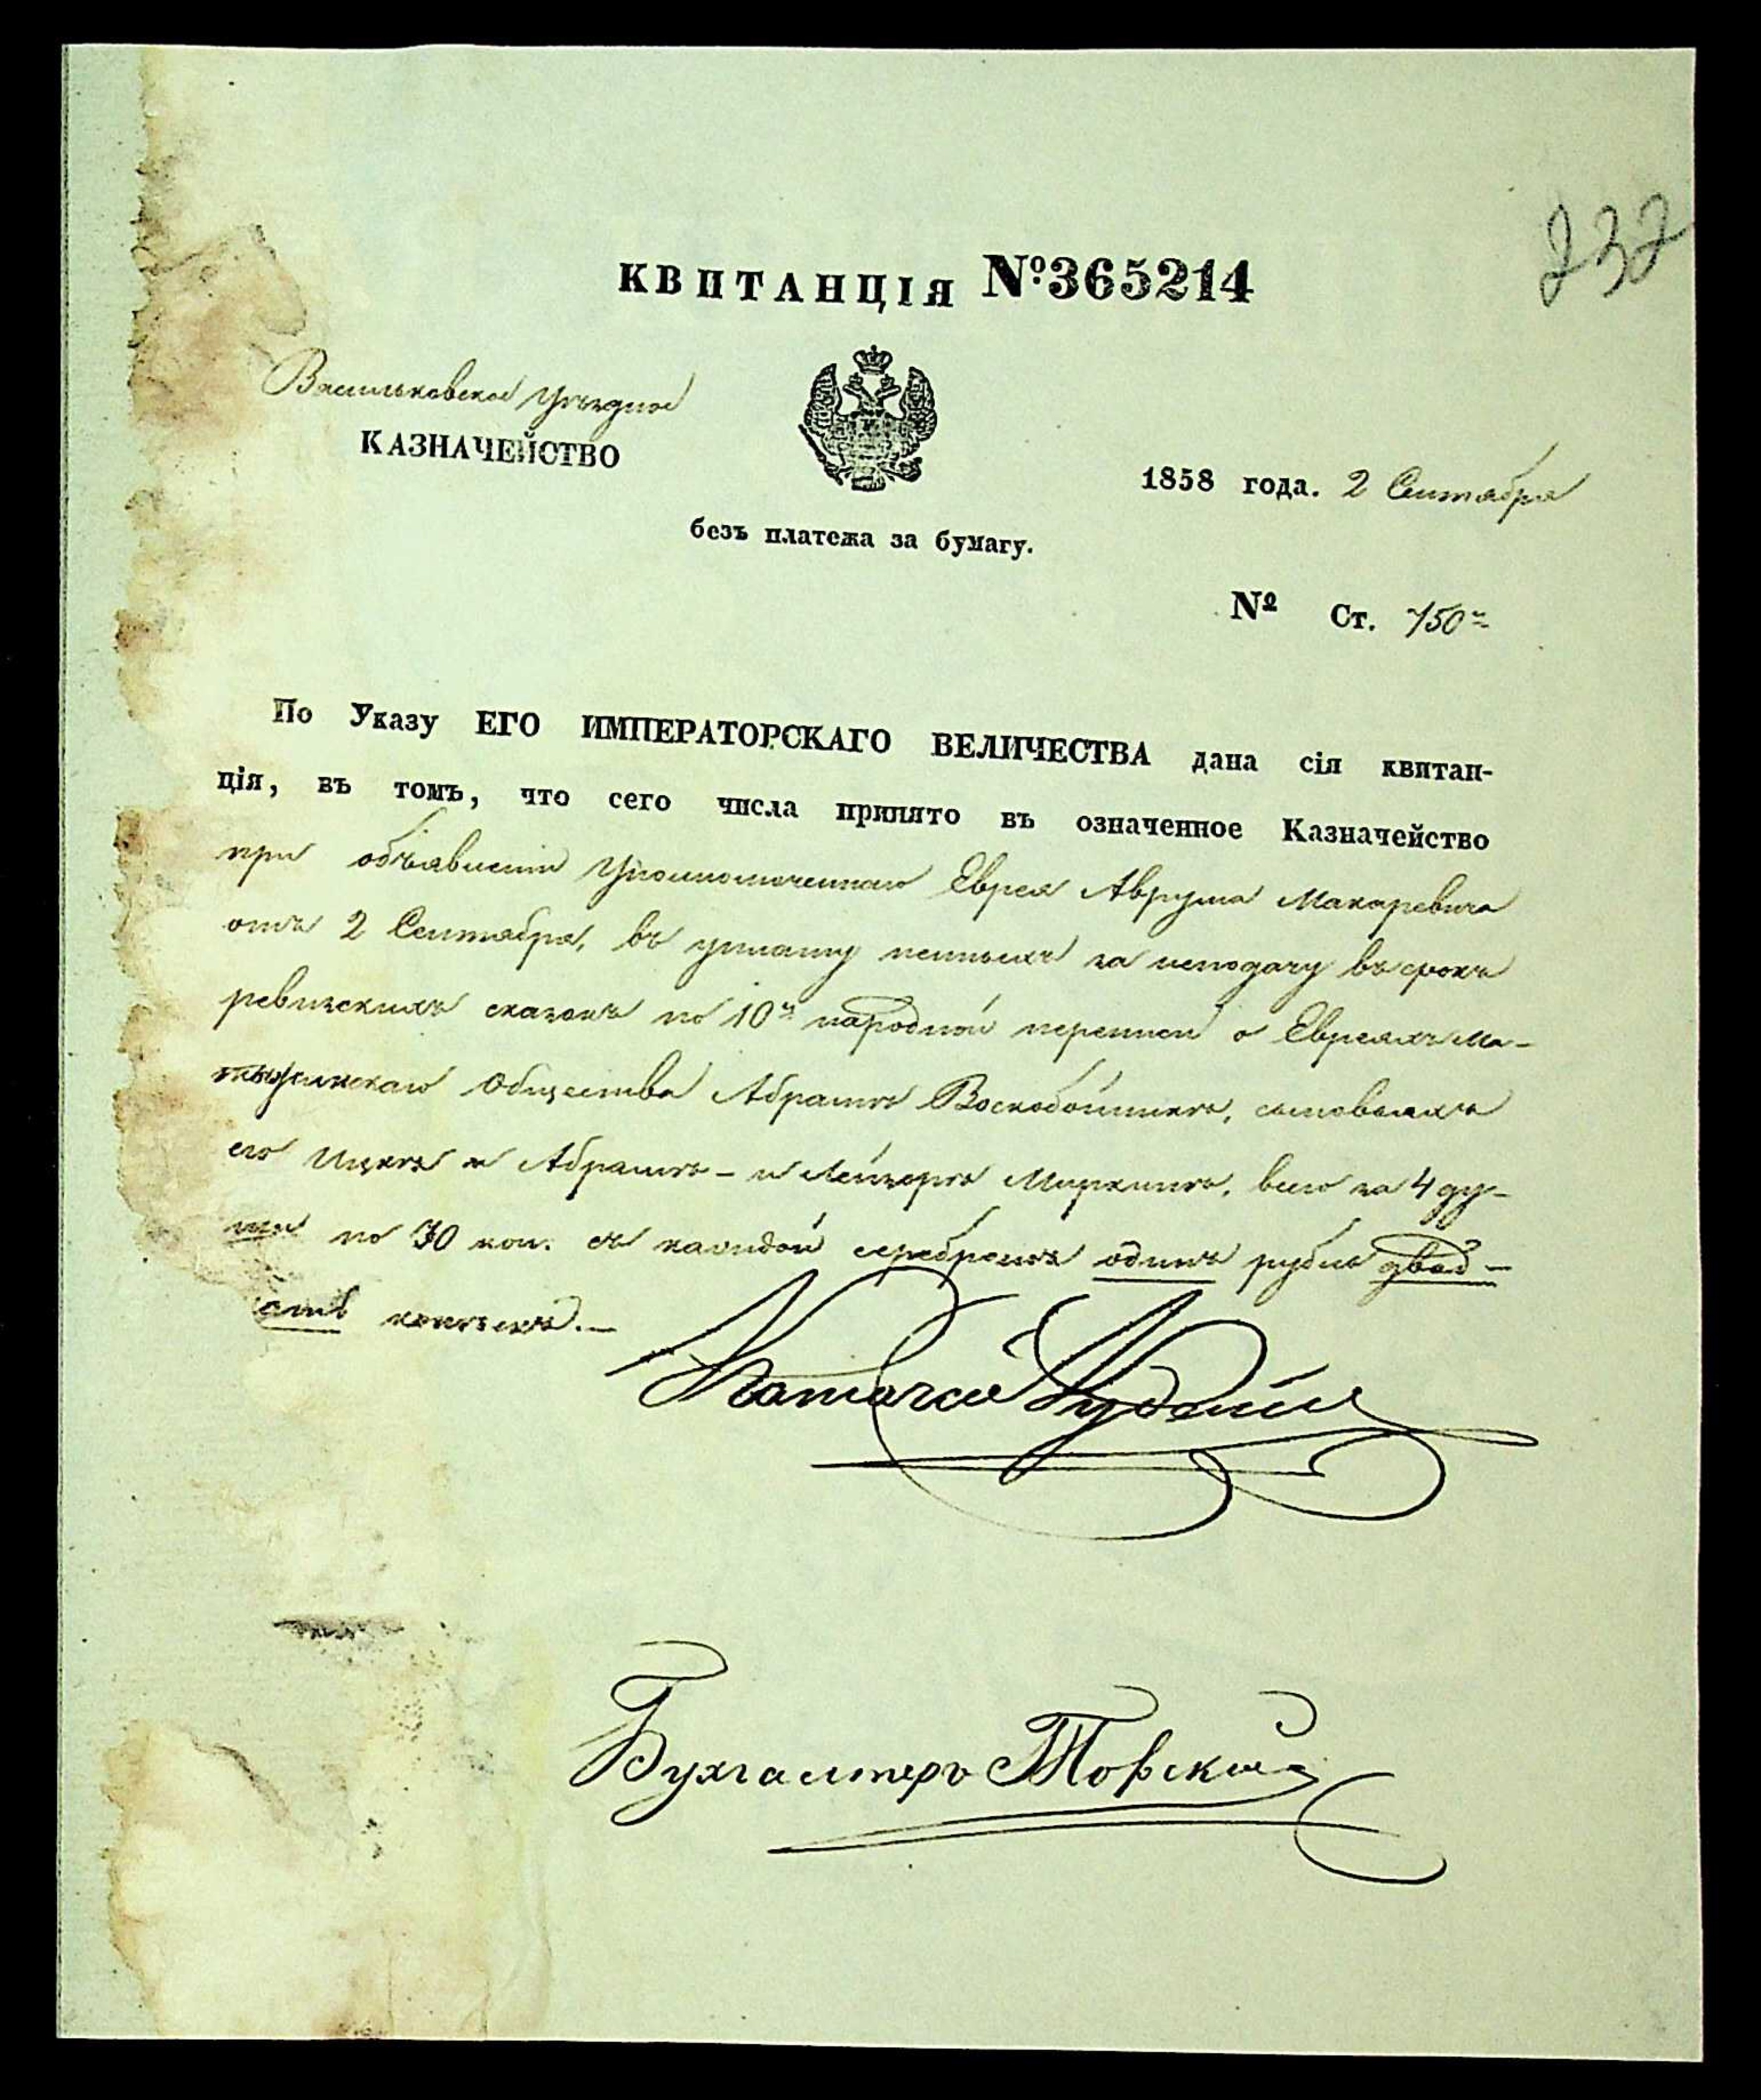 237
КВИТАНЦІЯ №365214
Васильковское уѣздное
КАЗНАЧЕЙСТВО
1858 года. 2 Сентября
безъ платежа за бумагу.
№ Ст. 750
По Указу ЕГО ИМПЕРАТОРСКАГО ВЕЛИЧЕСТВА дана сія квитан-
ція, въ томъ, что сего числа принято въ означенное Казначейство
при объявленіи Уполномоченнаго Еврея Аврума Макаревича
отъ 2 Сентября, въ уплату пенныхъ за неподачу въ срокъ
ревизскихъ сказокъ по 10й народной переписи о Евреяхъ
Общества Абрамѣ Воскобойникѣ, сыновьяхъ
его Ицкѣ и Абрамѣ – и Лейзорѣ Миркинѣ, всего за 4 ду-
ши по 30 коп. съ каждой серебромъ одинъ рубль двад-
цать копѣекъ. –
Бухгалтеръ